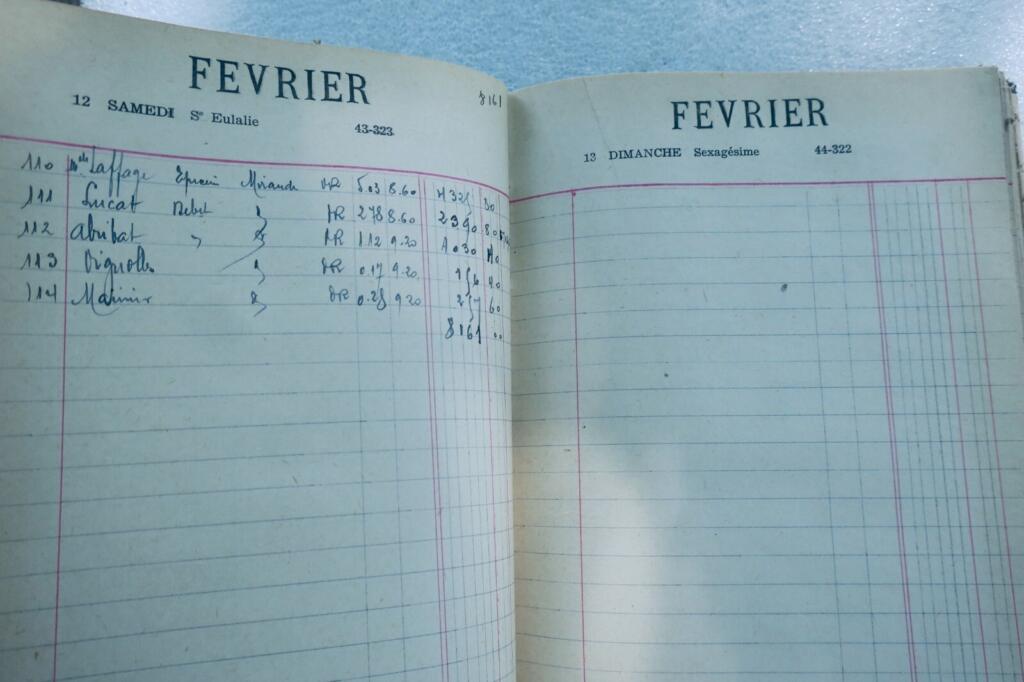 FEVRIER
12 SAMEDI Sᵉ Eulalie 43-323
8161
110 Laffage Mirande 5.03 8.60 4325 80
111 Lucat 278 8.60 2390 80
112 Abribat 112 9.20 1030 40
113 Vignolles 0.17 9.20 156 40
114 0.28 9.20 257 60
8161 00
FEVRIER
13 DIMANCHE Sexagésime 44-322